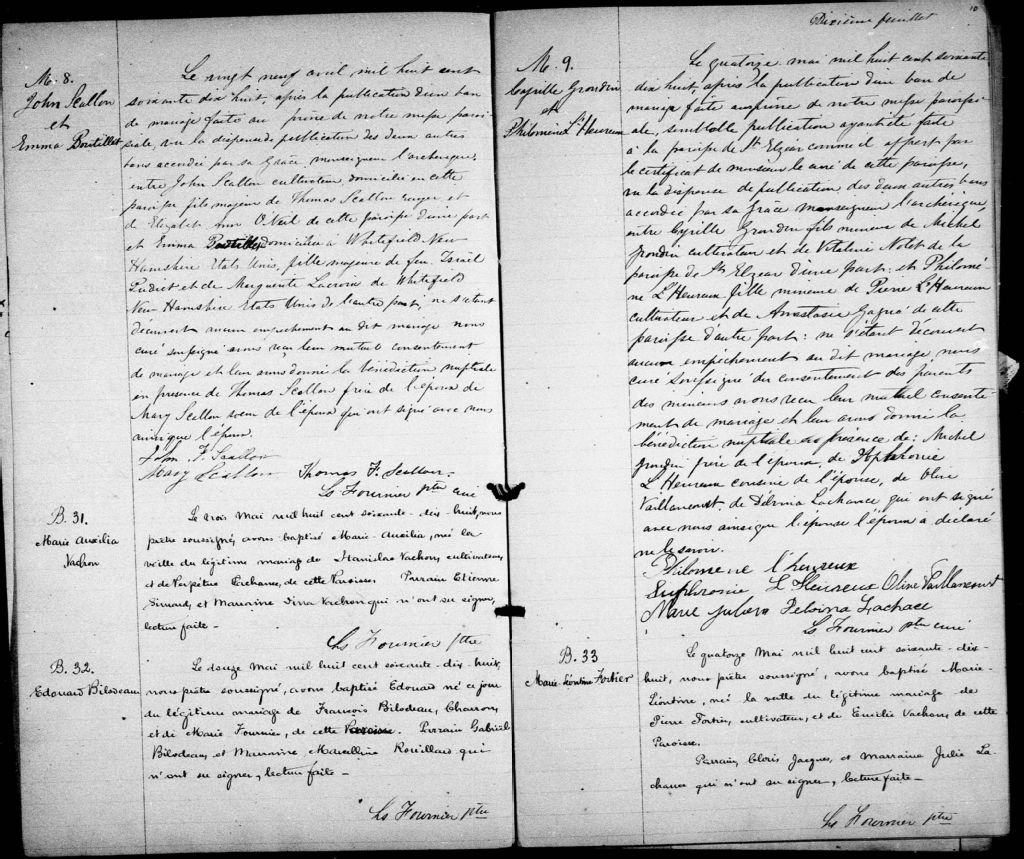 M. 8.
John Scallon
et
Emma Boutillet
Le vingt neuf avril mil huit cent
soixante dix huit, après la publication d'un ban
de mariage faite au prône de notre messe paroi-
ssiale, vu la dispense de publication des deux autres
bans accordée par sa Grâce monseigneur l'archevêque,
entre John Scallon cultivateur domicilié en cette
paroisse fils majeur de Thomas Scallon et
de Elizabet Ann O'Neil de cette paroisse d'une part
et Emma domiciliée à Whitefield New
Hamshire Etats Unis, fille majeure de feu Israël
et de Marguerite Lacroix de Whitefield
New Hamshire Etats Unis de l'autre part; ne s'étant
découvert aucun empêchement au dit mariage nous
curé soussigné avons reçu leur mutuel consentement
de mariage et leur avons donné la bénédiction nuptiale
en presence de Thomas Scallon frère de l'époux de
Mary Scallon soeur de l'époux qui ont signé avec nous
ainsi que l'époux.
John F. Scallon
Mary Scallon Thomas F. Scallon.
Ls Fournier ptre curé
B. 31.
Marie Auxilia
Vachon
Le trois Mai mil huit cent soixante-dix-huit, nous
prêtre soussigné, avons baptisé Marie-Auxilia, née la
veille du légitime mariage de Stanislas Vachon, cultivateur,
et de Perpétue de cette Paroisse. Parrain Etienne
Simard, et Marraine Dina Vachon qui n'ont su signer,
lecture faite-
Ls Fournier Ptre
B. 32.
Edouard Bilodeau
Le douze Mai mil huit cent soixante-dix-huit,
nous prêtre soussigné, avons baptisé Edouard né ce jour
du légitime mariage de François Bilodeau, Charron,
et de Marie Fournier, de cette Paroisse. Parrain Gabriel
Bilodeau, et Marraine Marcelline Rouillard qui
n'ont su signer, lecture faite-
Ls Fournier Ptre
10
Dixième feuillet
M. 9.
Cyrille Grondin
et
Philomène L'Heureux
Le quatorze mai mil huit cent soixante
dix huit, après la publication d'un ban de
mariage faite au prône de notre messe paroissi-
ale, semblable publication ayant été faite
à la paroisse de St Elzear comme il appert par
le certificat de monsieur le curé de cette paroisse,
vu la dispense de publication des deux autres bans
accordée par sa Grâce monseigneur l'archevêque,
entre Cyrille Grondin fils mineur de Michel
Grondin cultivateur et de Vitaline Nolet de la
paroisse de St Elzear d'une part: et Philomè-
ne L'Heureux fille mineure de Pierre L'Heureux
cultivateur et de Anastasie Gagné de cette
paroisse d'autre part: ne s'étant découvert
aucun empêchement au dit mariage nous
curé soussigné du consentement des parents
des mineurs avons reçu leur mutuel consente-
ment de mariage et leur avons donné la
bénédiction nuptiale en présence de: Michel
Grondin frère de l'époux, de
L'Heureux cousine de l'épouse, de Olive
Vaillancourt, de Delvina Lachance qui ont signé
avec nous ainsi que l'épouse l'époux a déclaré
ne le savoir.
Philomene l'heureux
Euphrosine L'Heureux Olive Vaillancourt
Marie Julien
Ls Fournier ptre curé
B. 33
Marie-Léontine Fortier
Le quatorze Mai mil huit cent soixante-dix-
huit, nous prêtre soussigné, avons baptisé Marie-
Léontine, née la veille du légitime mariage de
Pierre Fortier, cultivateur, et de Emilie Vachon, de cette
Paroisse.
Parrain, Cloris Jacques, et Marraine Julie La-
chance qui n'ont su signer, lecture faite-
Ls Fournier Ptre